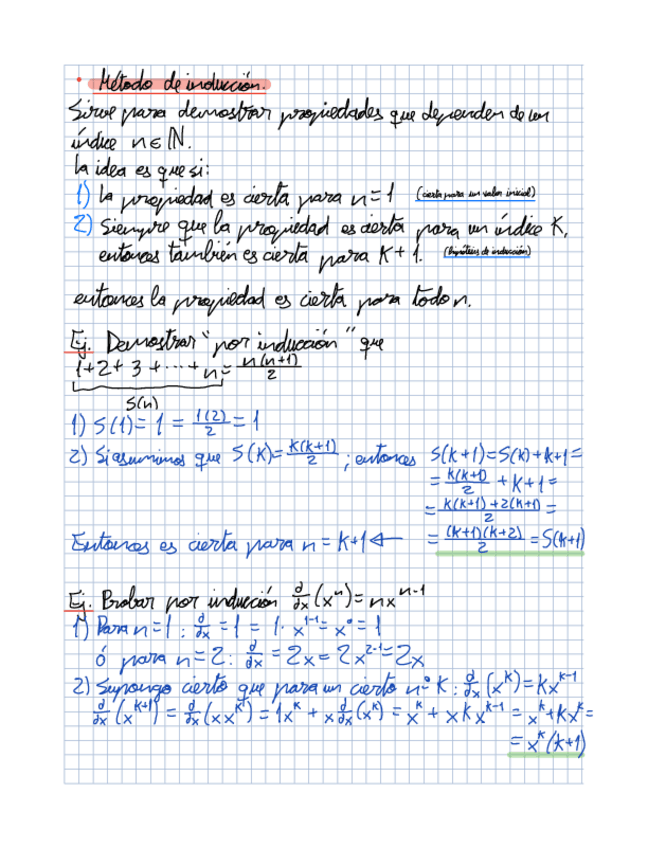 • Método de inducción.
Sirve para demostrar propiedades que dependen de un
índice n ∈ ℕ.
la idea es que si:
1) la propiedad es cierta para n = 1 (cierta para un valor inicial)
2) Siempre que la propiedad es cierta para un índice K,
entonces también es cierta para K + 1. (hipótesis de inducción)
entonces la propiedad es cierta para todo n.
Ej. Demostrar "por inducción" que
1+2+3+⋯+n = n(n+1)/2
S(n)
1) S(1) = 1 = 1(2)/2 = 1
2) Si asumimos que S(K) = K(K+1)/2 ; entonces S(k+1) = S(k)+k+1 =
= K(K+1)/2 + K+1 =
= K(K+1)+2(K+1)/2 =
Entonces es cierta para n = K+1 ← = (K+1)(K+2)/2 = S(K+1)
Ej. Probar por inducción d/dx (xⁿ) = nxⁿ⁻¹
1) Para n=1 : d/dx = 1 = 1· x¹⁻¹ = x⁰ = 1
ó para n=2 : d/dx = 2x = 2x²⁻¹ = 2x
2) Supongo cierto que para un cierto nº K : d/dx (xᴷ) = Kxᴷ⁻¹
d/dx (xᴷ⁺¹) = d/dx (x xᴷ) = 1xᴷ + x d/dx (xᴷ) = xᴷ + x K xᴷ⁻¹ = xᴷ + Kxᴷ =
= xᴷ (K+1)